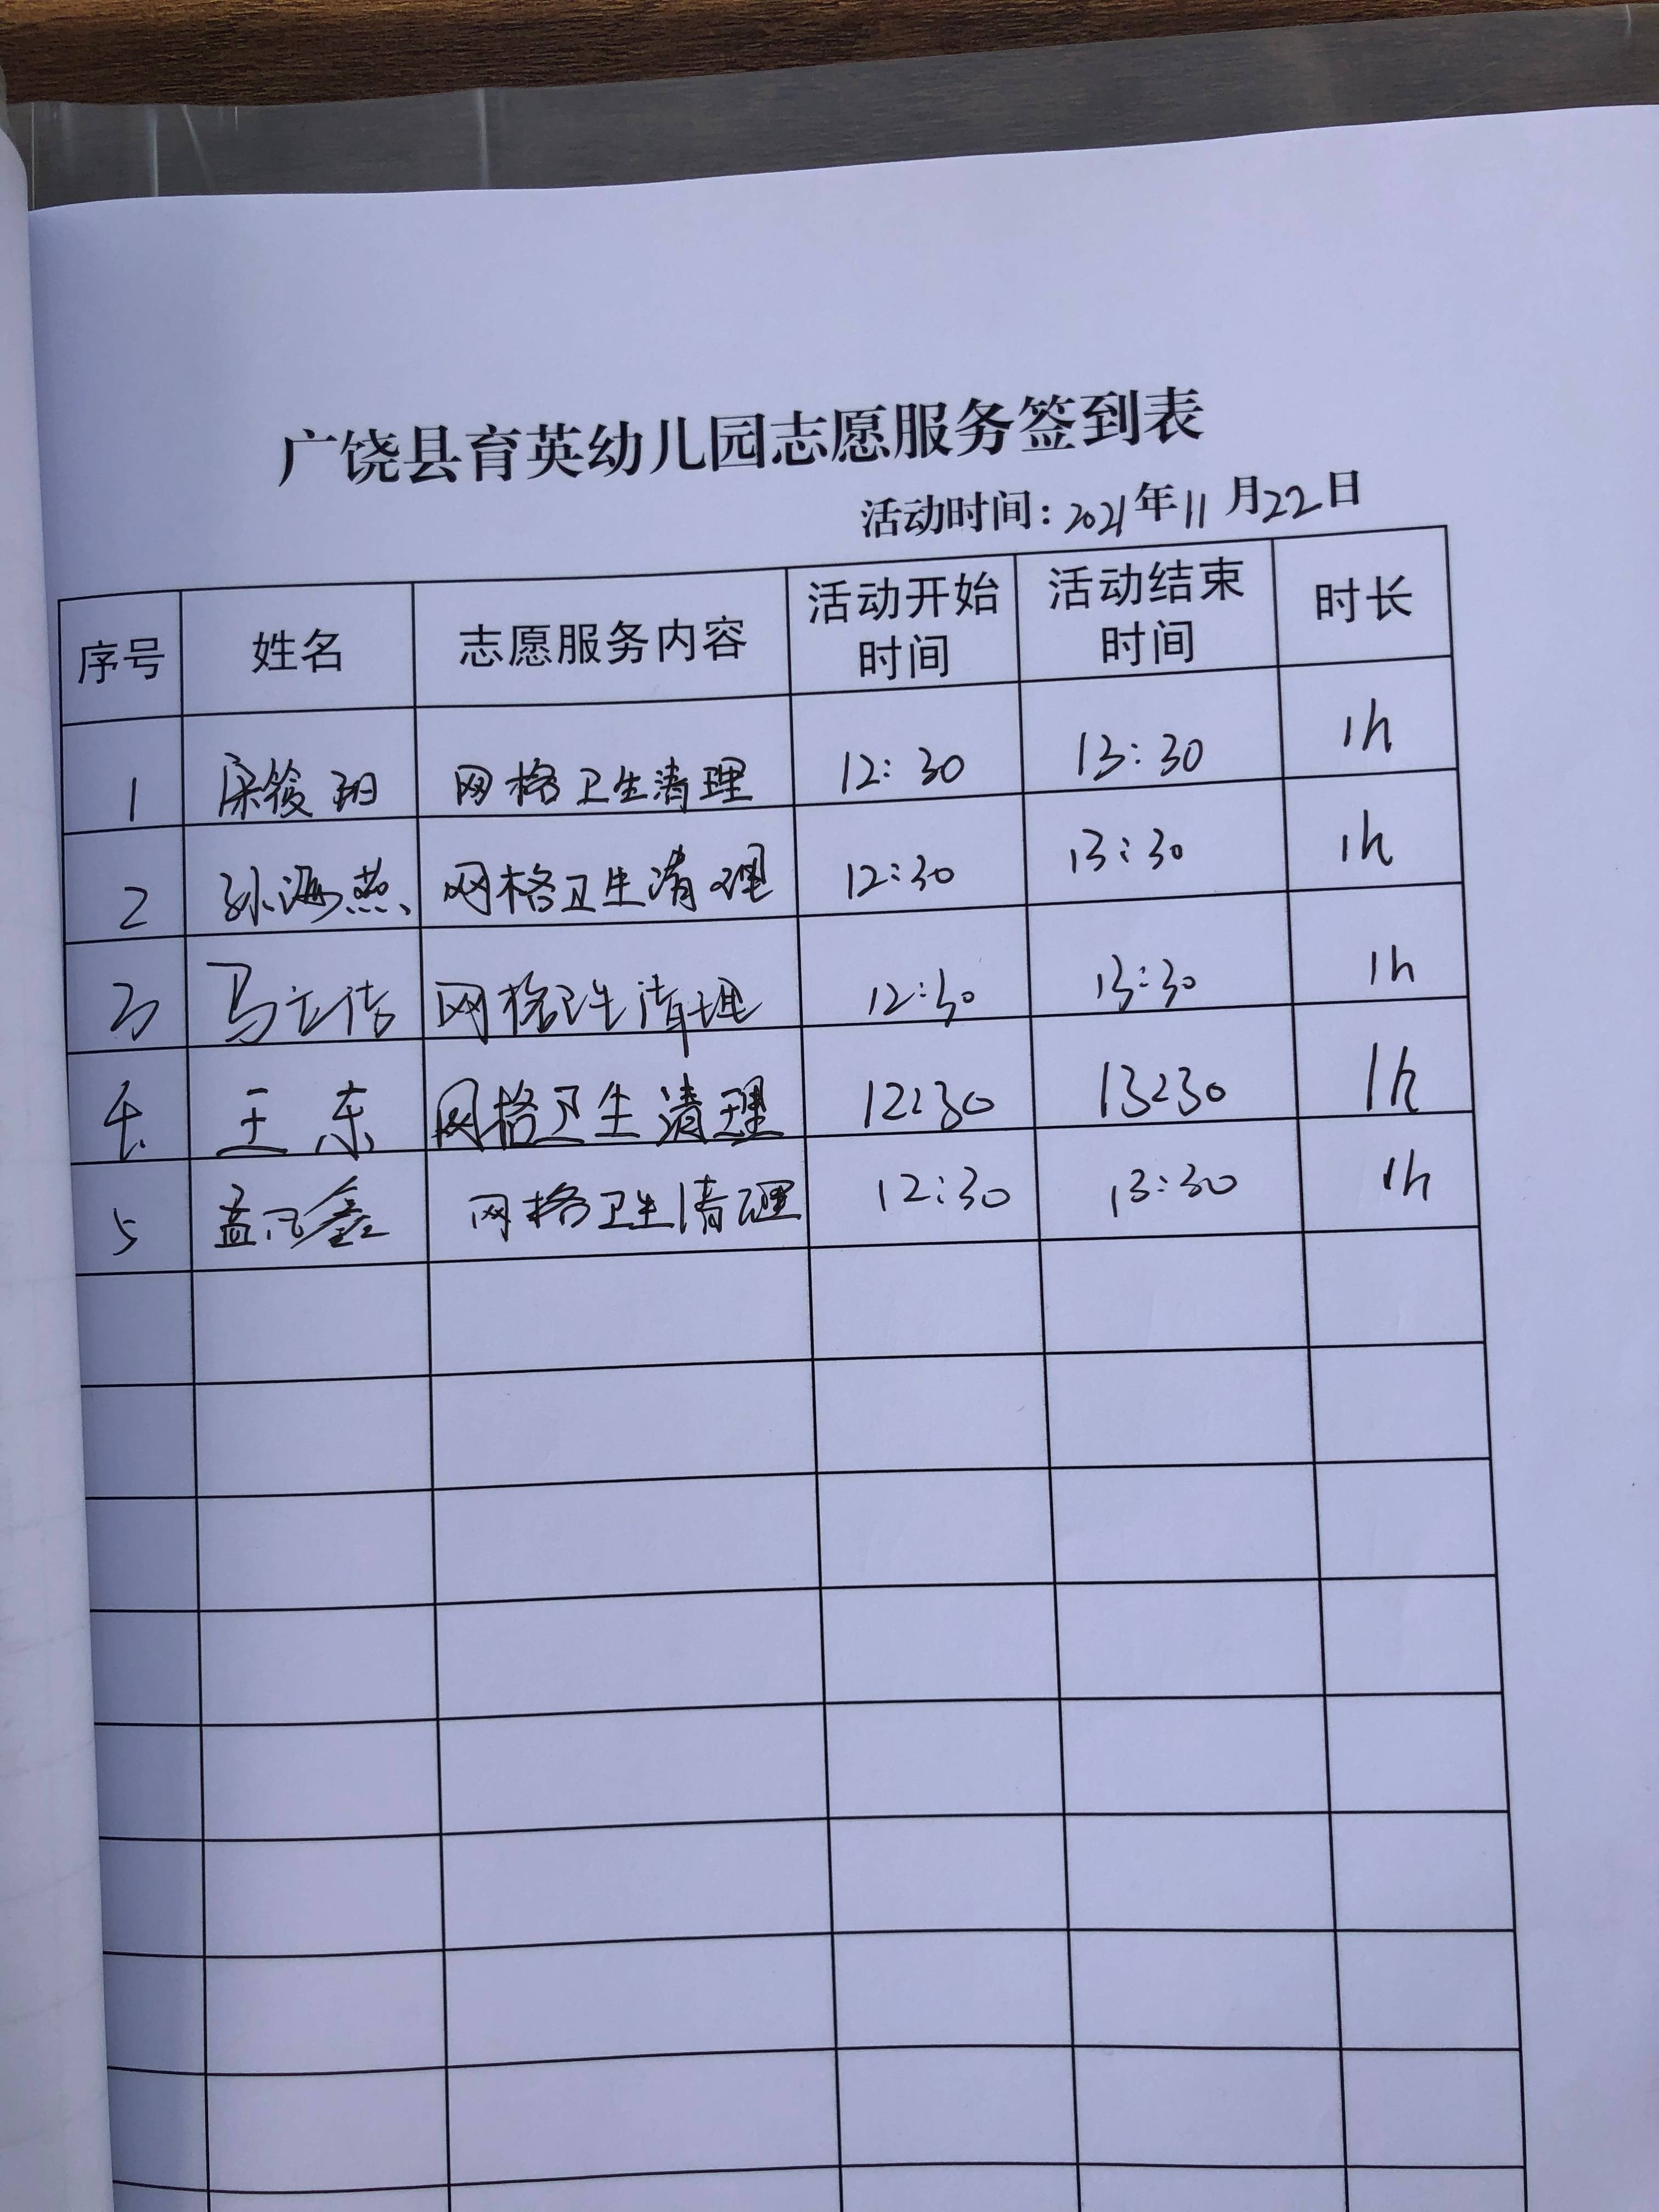 广饶县育英幼儿园志愿服务签到表
活动时间：2021年11月22日
序号 姓名 志愿服务内容 活动开始时间 活动结束时间 时长
1 网格卫生清理 12:30 13:30 1h
2 孙海燕 网格卫生清理 12:30 13:30 1h
3 马 网格卫生清理 12:30 13:30 1h
王东 网格卫生清理 12:30 13:30 1h
5 孟 鑫 网格卫生清理 12:30 13:30 1h